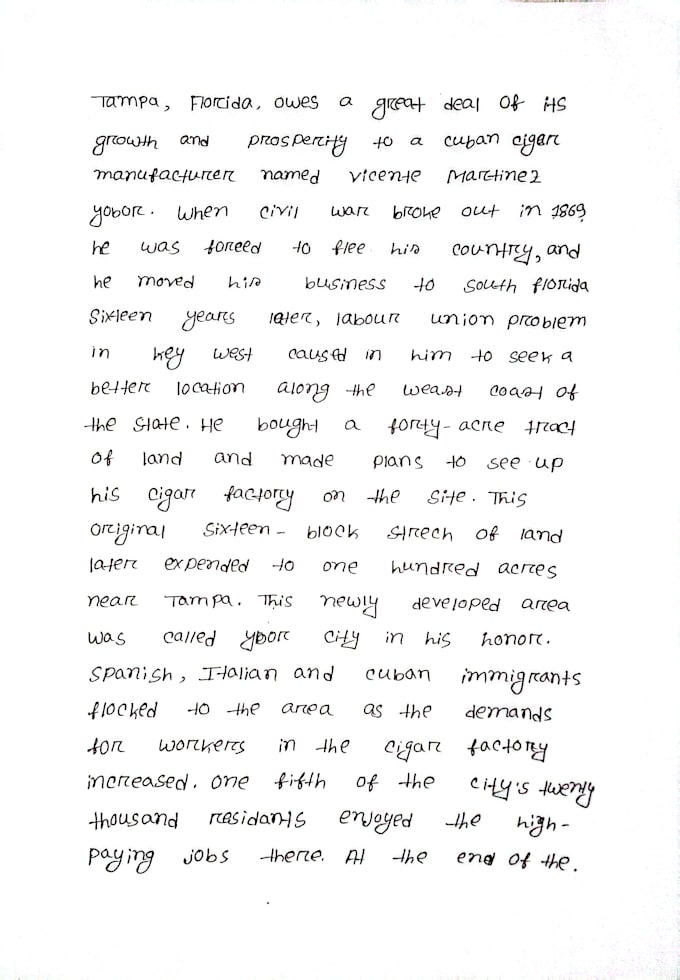 Tampa, Florida, owes a great deal of its
growth and prosperity to a cuban cigar
manufacturer named vicente Martinez
yobor. when civil war broke out in 1869,
he was forced to flee his country, and
he moved his business to south florida
Sixteen years later, labour union problem
in key west caused in him to seek a
better location along the weast coast of
the state. He bought a forty-acre tract
of land and made plans to see up
his cigar factory on the site. This
original sixteen-block strech of land
later expended to one hundred acres
near Tampa. This newly developed area
was called ybor city in his honor.
Spanish, Italian and cuban immigrants
flocked to the area as the demands
for workers in the cigar factory
increased. one fifth of the city's twenty
thousand residants enjoyed the high-
paying jobs there. At the end of the.